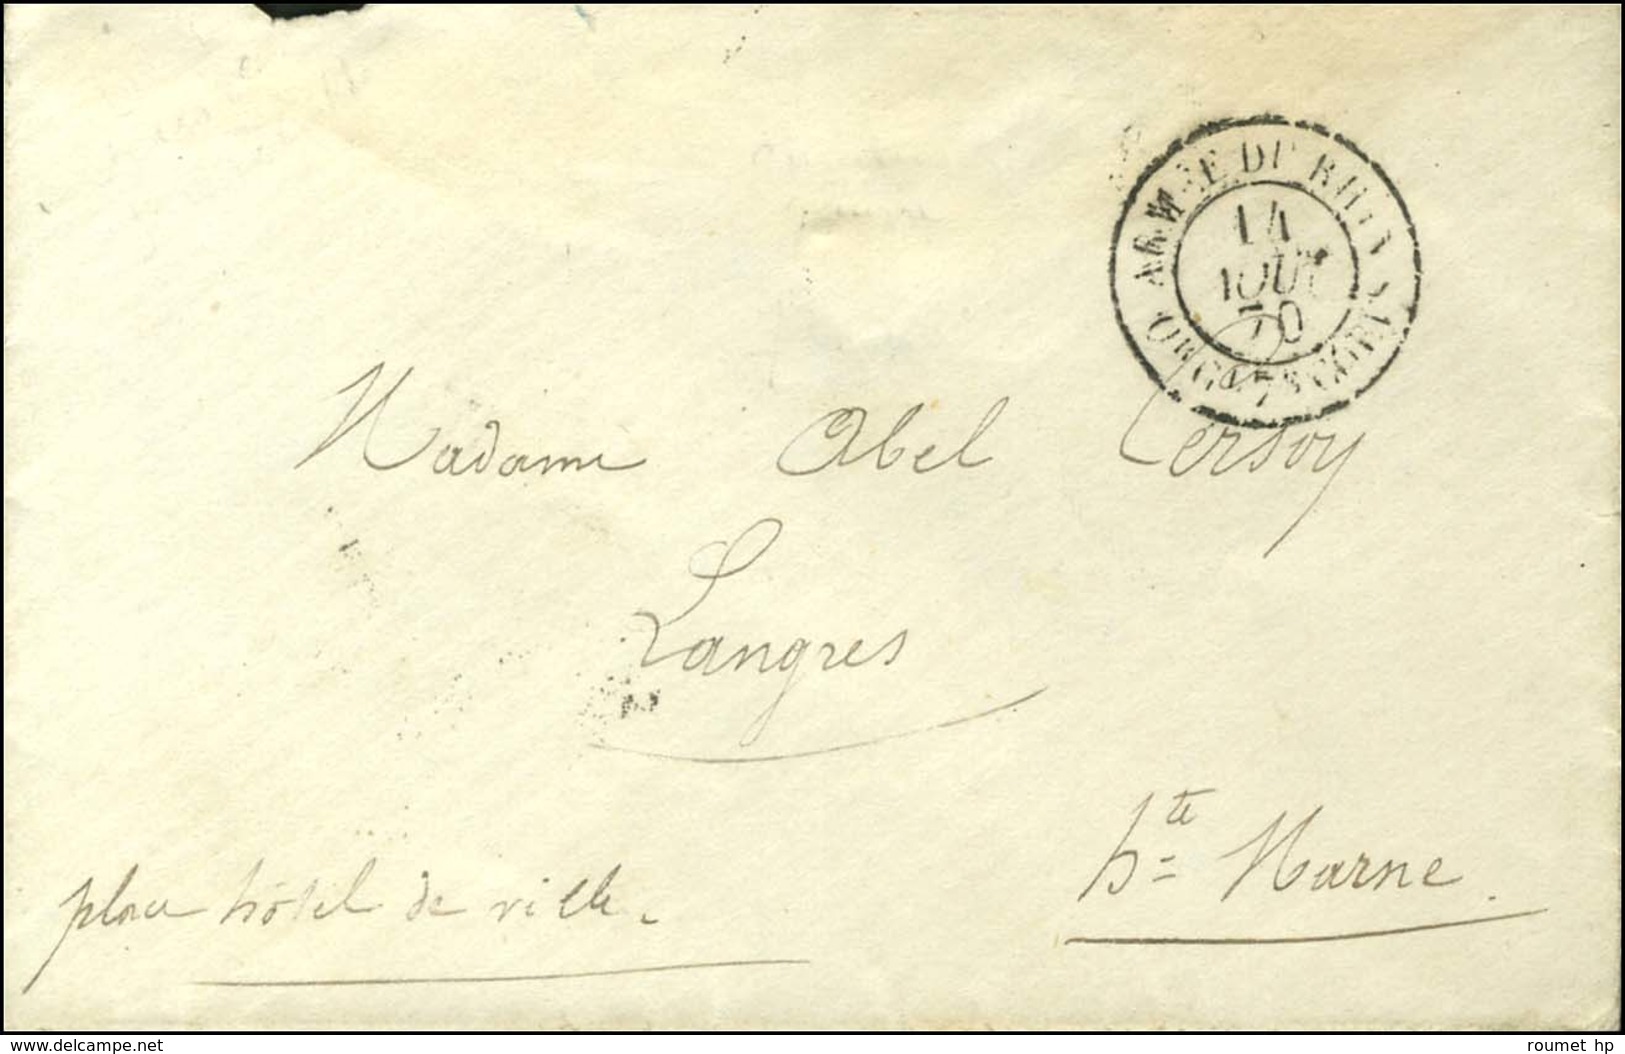 ARMÉE DU RHIN
14
AOUT
70
Madame Abel Cersoy
Langres
hte Marne.
place hôtel de ville.
delcampe.net
roumet hp